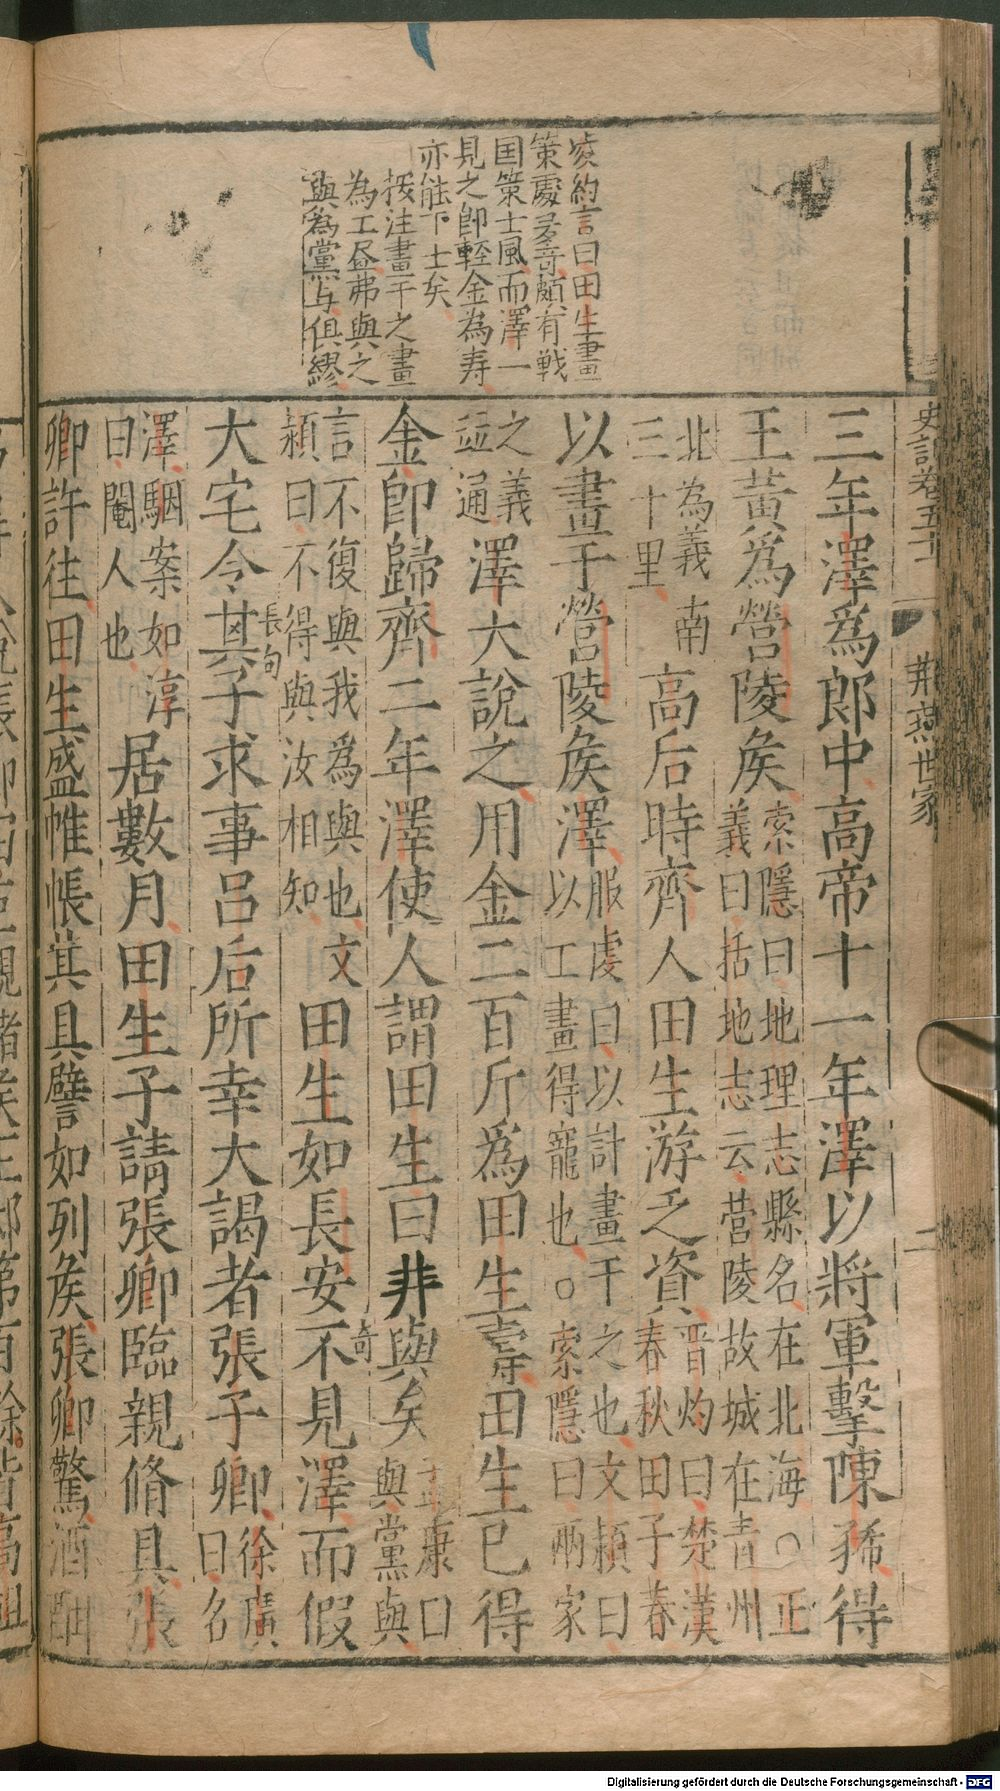 史記卷五十一
荆燕世家
二
凌約言曰田生畫
策處爻竒頗有戰
国策士風而澤一
見之卽輕金為寿
亦能下士矣
按注畫干之畫
為工㞱弗與之
與為黨与俱繆
三年澤爲郎中高帝十一年澤以將軍擊陳豨得
王黃爲營陵矦
索隱曰地理志縣名在北海○正
義曰括地志云营陵故城在青州
北為義南
三十里
高后時齊人田生游乏資
晋灼曰楚漢
春秋田子春
以畫干營陵矦澤
服虔曰以計畫干之也文穎曰
以工畫得寵也○索隱曰兩家
之義
竝通
澤大說之用金二百斤爲田生壽田生已得
金卽歸齊二年澤使人謂田生曰非與矣
孟康曰
與黨與
言不復與我爲與也文
穎曰不得與汝相知
田生如長安不見澤而假
奇
大宅令其子求事呂后所幸大謁者張子卿
長句
徐廣
曰名
澤駰案如淳
曰閹人也
居數月田生子請張卿臨親脩具張
卿許往田生盛帷帳其具譬如列矦張卿驚酒酣
Digitalisierung gefördert durch die Deutsche Forschungsgemeinschaft - DFG